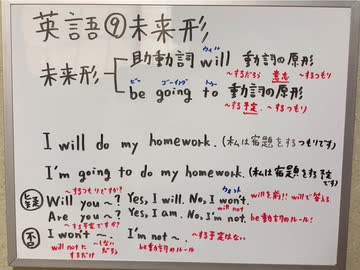 英語⑨未来形
ウィル
未来形 助動詞 will 動詞の原形
~するだろう 意志 ~するつもり
ビー ゴーイング トゥー
be going to 動詞の原形
~する予定、~するつもり
I will do my homework. (私は宿題をするつもりです)
I'm going to do my homework. (私は宿題をする予定です)
~するつもりですか? ウォント
疑 Will you ~? Yes, I will. No, I won't. willを前!! willで答える
will not
Are you ~? Yes, I am. No, I'm not. be動詞のルール!
~する予定ですか?
否 I won't ~. I'm not ~. ~する予定はない
will not と ~しないだろう be動詞のルール
するだけ